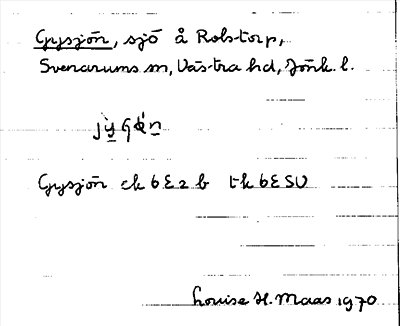 Gysjön, sjö å Robstorp,
Svenarums sn, Västra hd, Jönk. l.
Gysjön ek 6E2b tk 6E SV
Louise H. Maas 1970